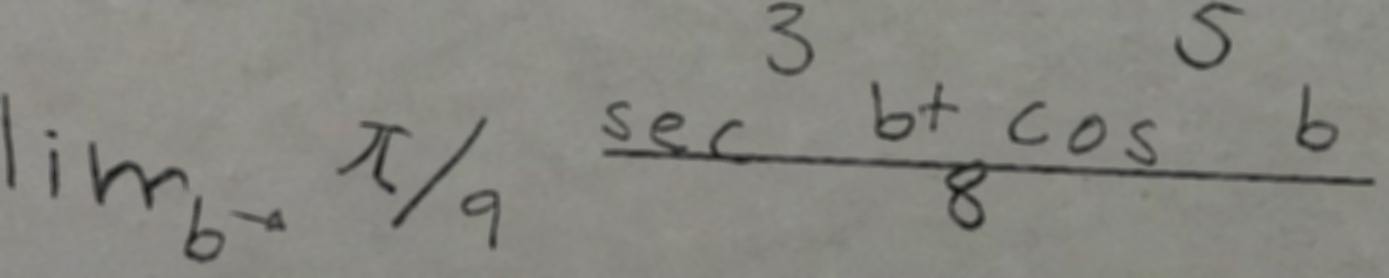 lim_{b→π/9} \frac{sec^3 b + cos^5 b}{8}